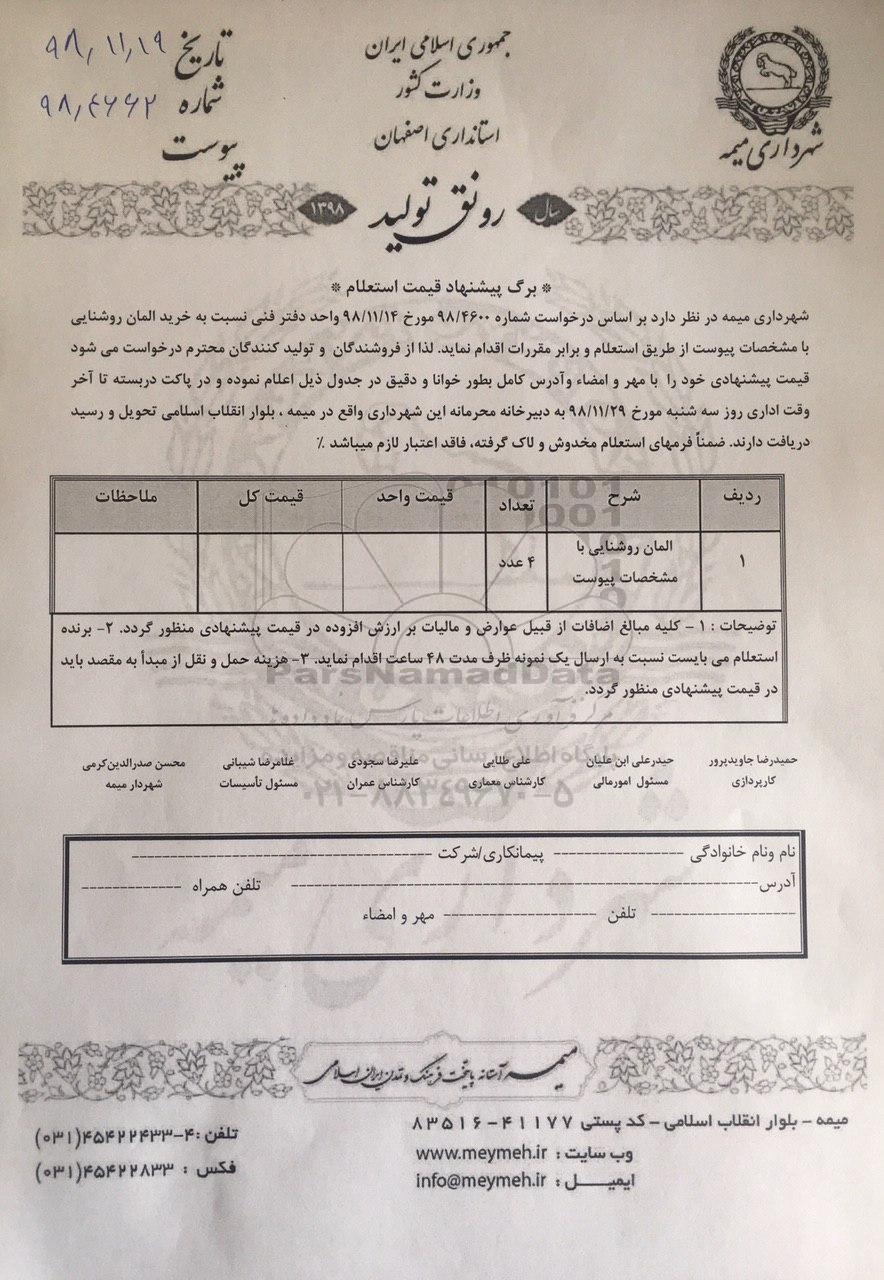 جمهوری اسلامی ایران
وزارت کشور
استانداری اصفهان
شهرداری میمه
تاریخ ۹۸/۱۱/۱۹
شماره ۹۸/۴۶۶۲
پیوست
سال رونق تولید ۱۳۹۸
* برگ پیشنهاد قیمت استعلام *
شهرداری میمه در نظر دارد بر اساس درخواست شماره ۹۸/۴۶۰۰ مورخ ۹۸/۱۱/۱۴ واحد دفتر فنی نسبت به خرید المان روشنایی
با مشخصات پیوست از طریق استعلام و برابر مقررات اقدام نماید. لذا از فروشندگان و تولید کنندگان محترم درخواست می شود
قیمت پیشنهادی خود را با مهر و امضاء وآدرس کامل بطور خوانا و دقیق در جدول ذیل اعلام نموده و در پاکت دربسته تا آخر
وقت اداری روز سه شنبه مورخ ۹۸/۱۱/۲۹ به دبیرخانه محرمانه این شهرداری واقع در میمه ، بلوار انقلاب اسلامی تحویل و رسید
دریافت دارند. ضمناً فرمهای استعلام مخدوش و لاک گرفته، فاقد اعتبار لازم میباشد ٪
ردیف شرح تعداد قیمت واحد قیمت کل ملاحظات
۱ المان روشنایی با ۴ عدد
مشخصات پیوست
توضیحات : ۱ – کلیه مبالغ اضافات از قبیل عوارض و مالیات بر ارزش افزوده در قیمت پیشنهادی منظور گردد. ۲- برنده
استعلام می بایست نسبت به ارسال یک نمونه ظرف مدت ۴۸ ساعت اقدام نماید. ۳- هزینه حمل و نقل از مبدأ به مقصد باید
در قیمت پیشنهادی منظور گردد.
ParsNamadData
پایگاه اطلاع رسانی مناقصه و مزایده
۰۲۱-۸۸۳۴۹۶۷۰-۵
حمیدرضا جاویدپرور حیدرعلی ابن علیان علی طلایی علیرضا سجودی غلامرضا شیبانی محسن صدرالدین‌کرمی
کارپردازی مسئول امورمالی کارشناس معماری کارشناس عمران مسئول تأسیسات شهردار میمه
نام ونام خانوادگی ---------------- پیمانکاری/شرکت ------------------------------------
آدرس-------------------------------------------------------- تلفن همراه ------------
------------------ تلفن ------------------- مهر و امضاء
میمه آستانه پایتخت فرهنگ و تمدن ایران اسلامی
میمه – بلوار انقلاب اسلامی – کد پستی ۴۱۱۷۷-۸۳۵۱۶
وب سایت : www.meymeh.ir
ایمیـــل : info@meymeh.ir
تلفن :۴-۴۵۴۲۲۴۳۳(۰۳۱)
فکس : ۴۵۴۲۲۸۳۳(۰۳۱)